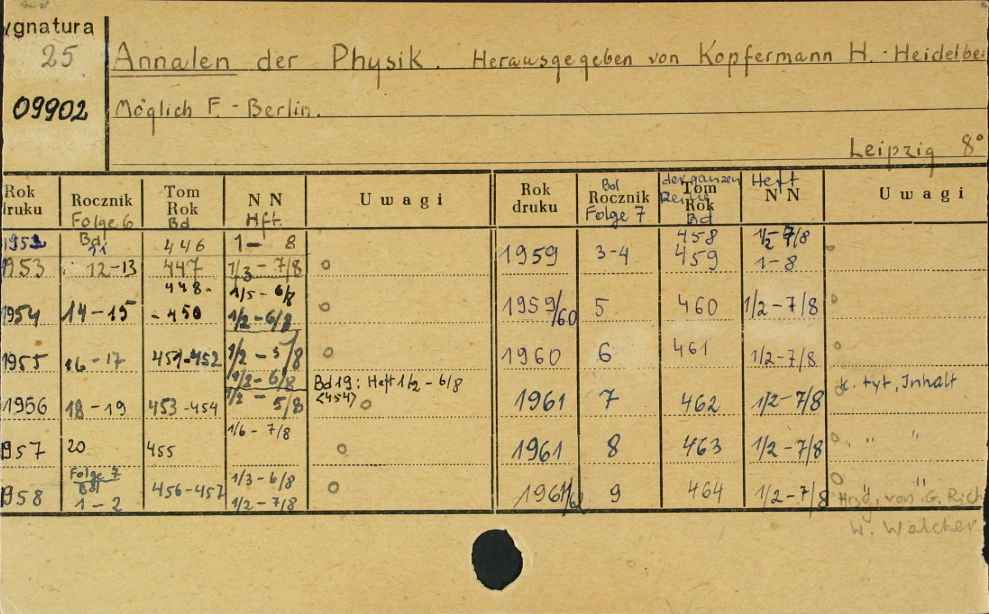 ygnatura
25
09902
Annalen der Physik. Herausgegeben von Kopfermann H. - Heidelbe
Möglich F. - Berlin.
Leipzig 8°
Rok druku Rocznik Folge 6 Bd Tom Rok Bd N N Hft Uwagi
1952 11 446 1 - 8
1953 12-13 447 1/3 - 7/8 o
448 - 1/5 - 6/8
1954 14-15 - 450 1/2 - 6/8 o
1955 16-17 451-452 1/2 - 5/8 o
1/2 - 6/8 Bd 19: Heft 1/2 - 6/8
1956 18-19 453-454 1/2 - 5/8 <454> o
1/6 - 7/8
957 20 455 o
Folge 7 Bd 1/3 - 6/8
958 1-2 456-457 1/2 - 7/8 o
Rok druku Bd Rocznik Folge 7 der ganzen Reihe Tom Rok Bd Heft N N Uwagi
458 1/2 - 7/8
1959 3-4 459 1-8 o
1959/60 5 460 1/2-7/8 o
1960 6 461 1/2-7/8 o
1961 7 462 1/2-7/8 tyt, Inhalt
1961 8 463 1/2-7/8 o " "
1961/62 9 464 1/2-7/8 o " "
Hrsg. von G. Rich
W. Walcher